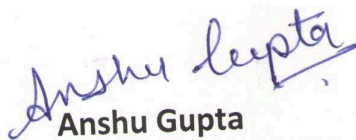 Anshu Gupta
Anshu Gupta